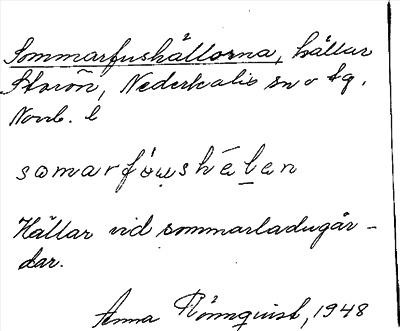 Sommarfushällorna, hällar
Storön, Nederkalix sn o tg.
Norrb. l
somarfówshélan
Hällar vid sommarladugår-
dar.
Anna Rönnquist, 1948